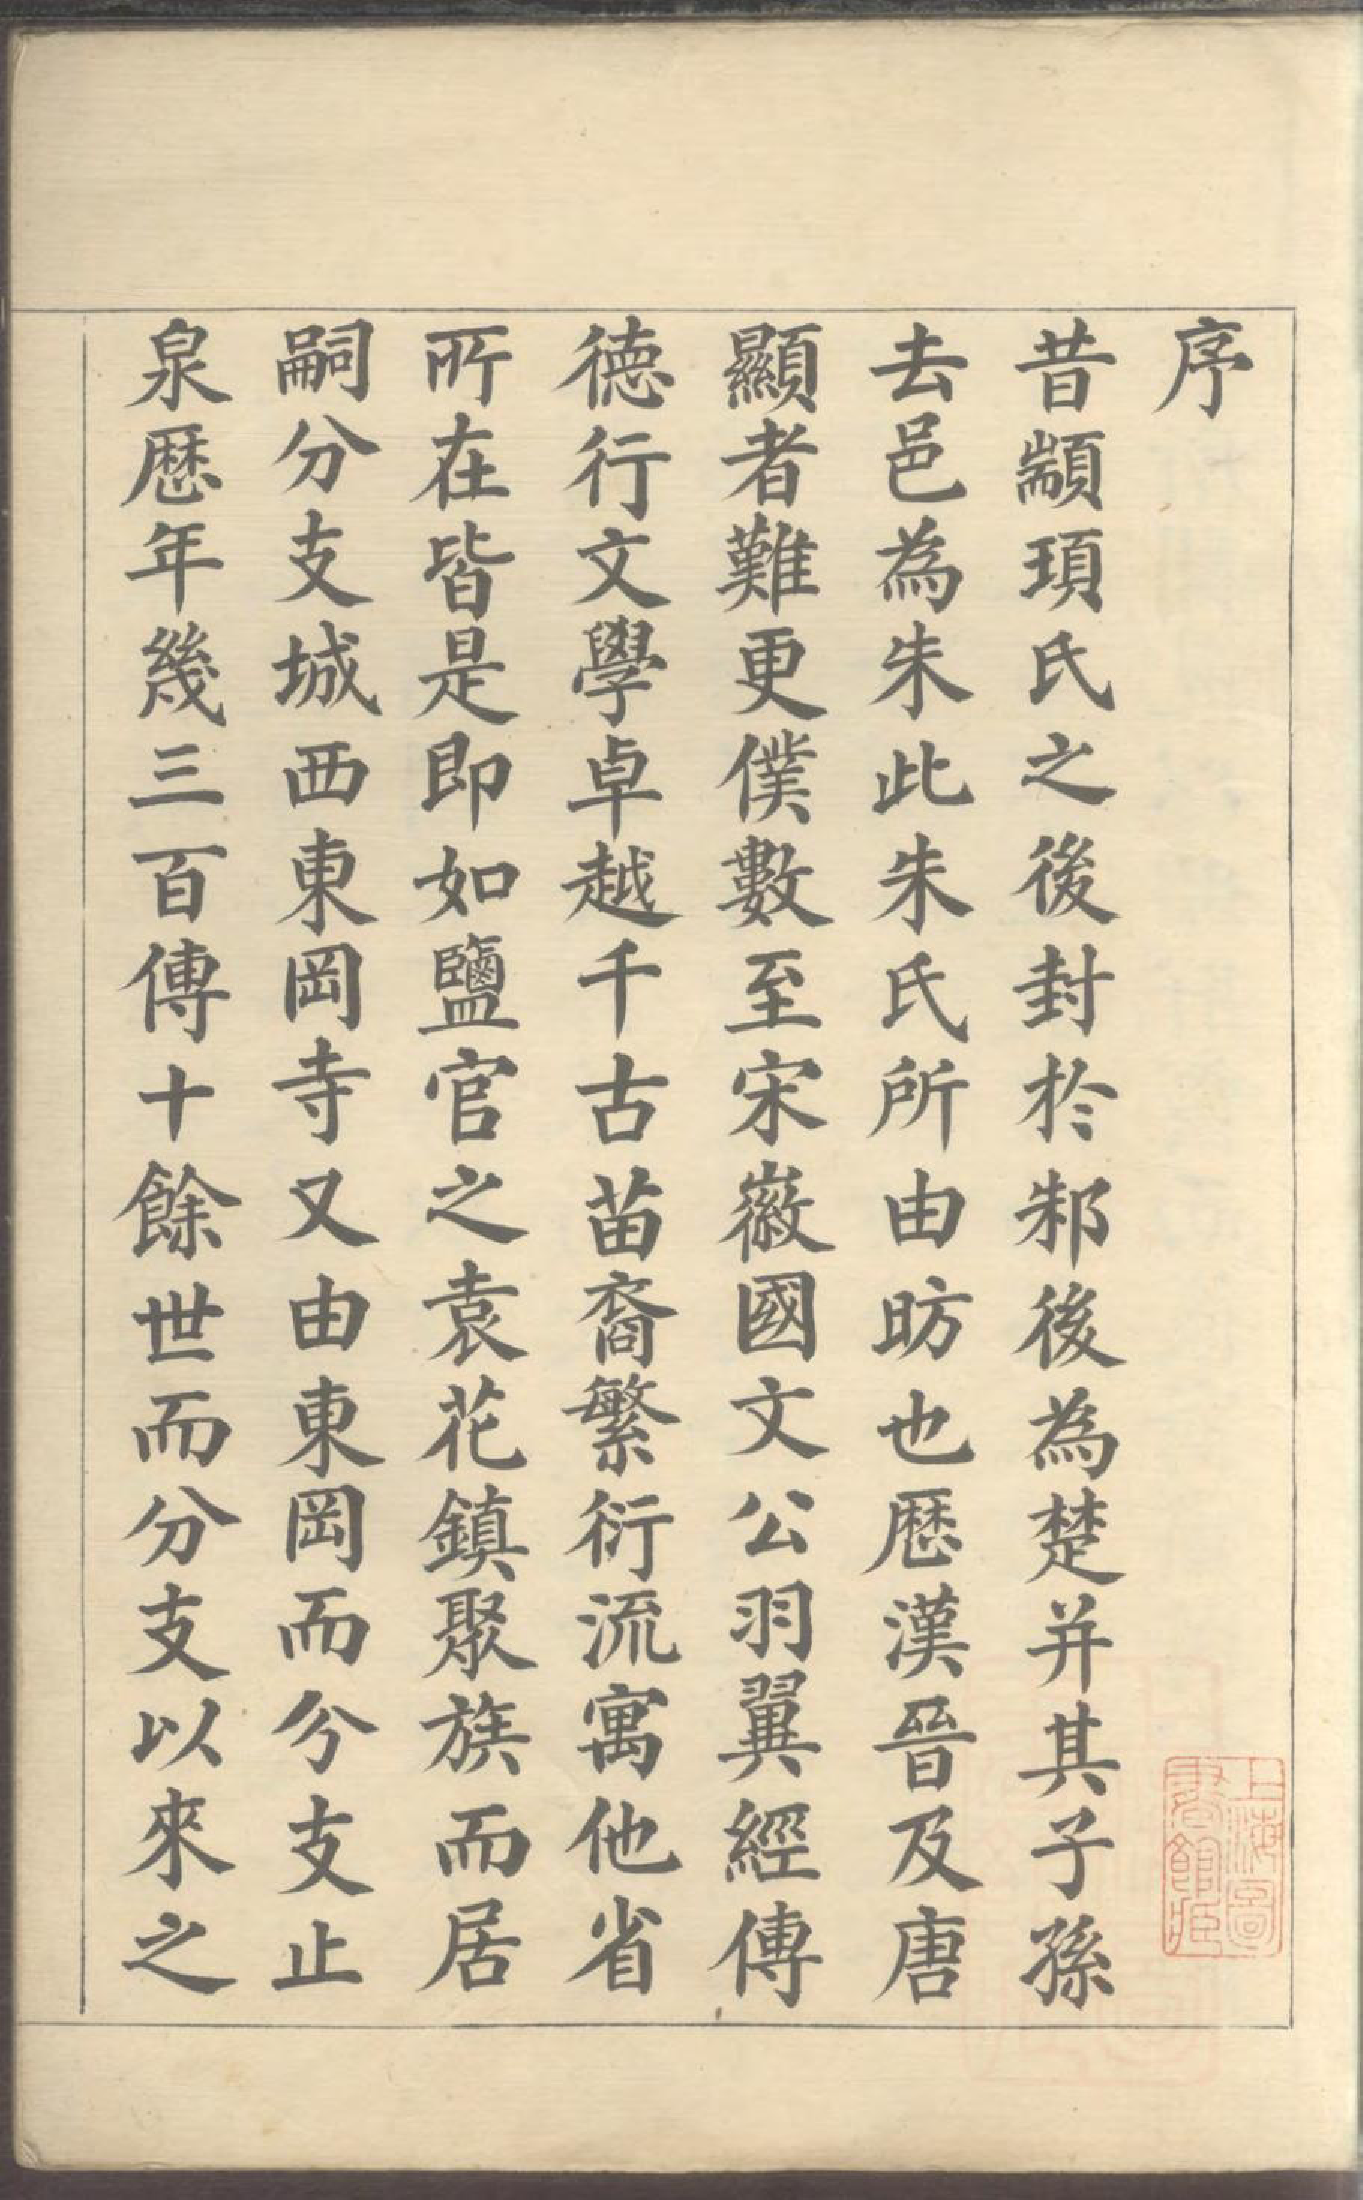 序
昔顓頊氏之後封於邾後為楚并其子孫
去邑為朱此朱氏所由昉也歷漢晉及唐
顯者難更僕數至宋徽國文公羽翼經傳
德行文學卓越千古苗裔繁衍流寓他省
所在皆是即如鹽官之袁花鎮聚族而居
嗣分支城西東岡寺又由東岡而分支止
泉歷年幾三百傳十餘世而分支以來之
上海圖
書館藏